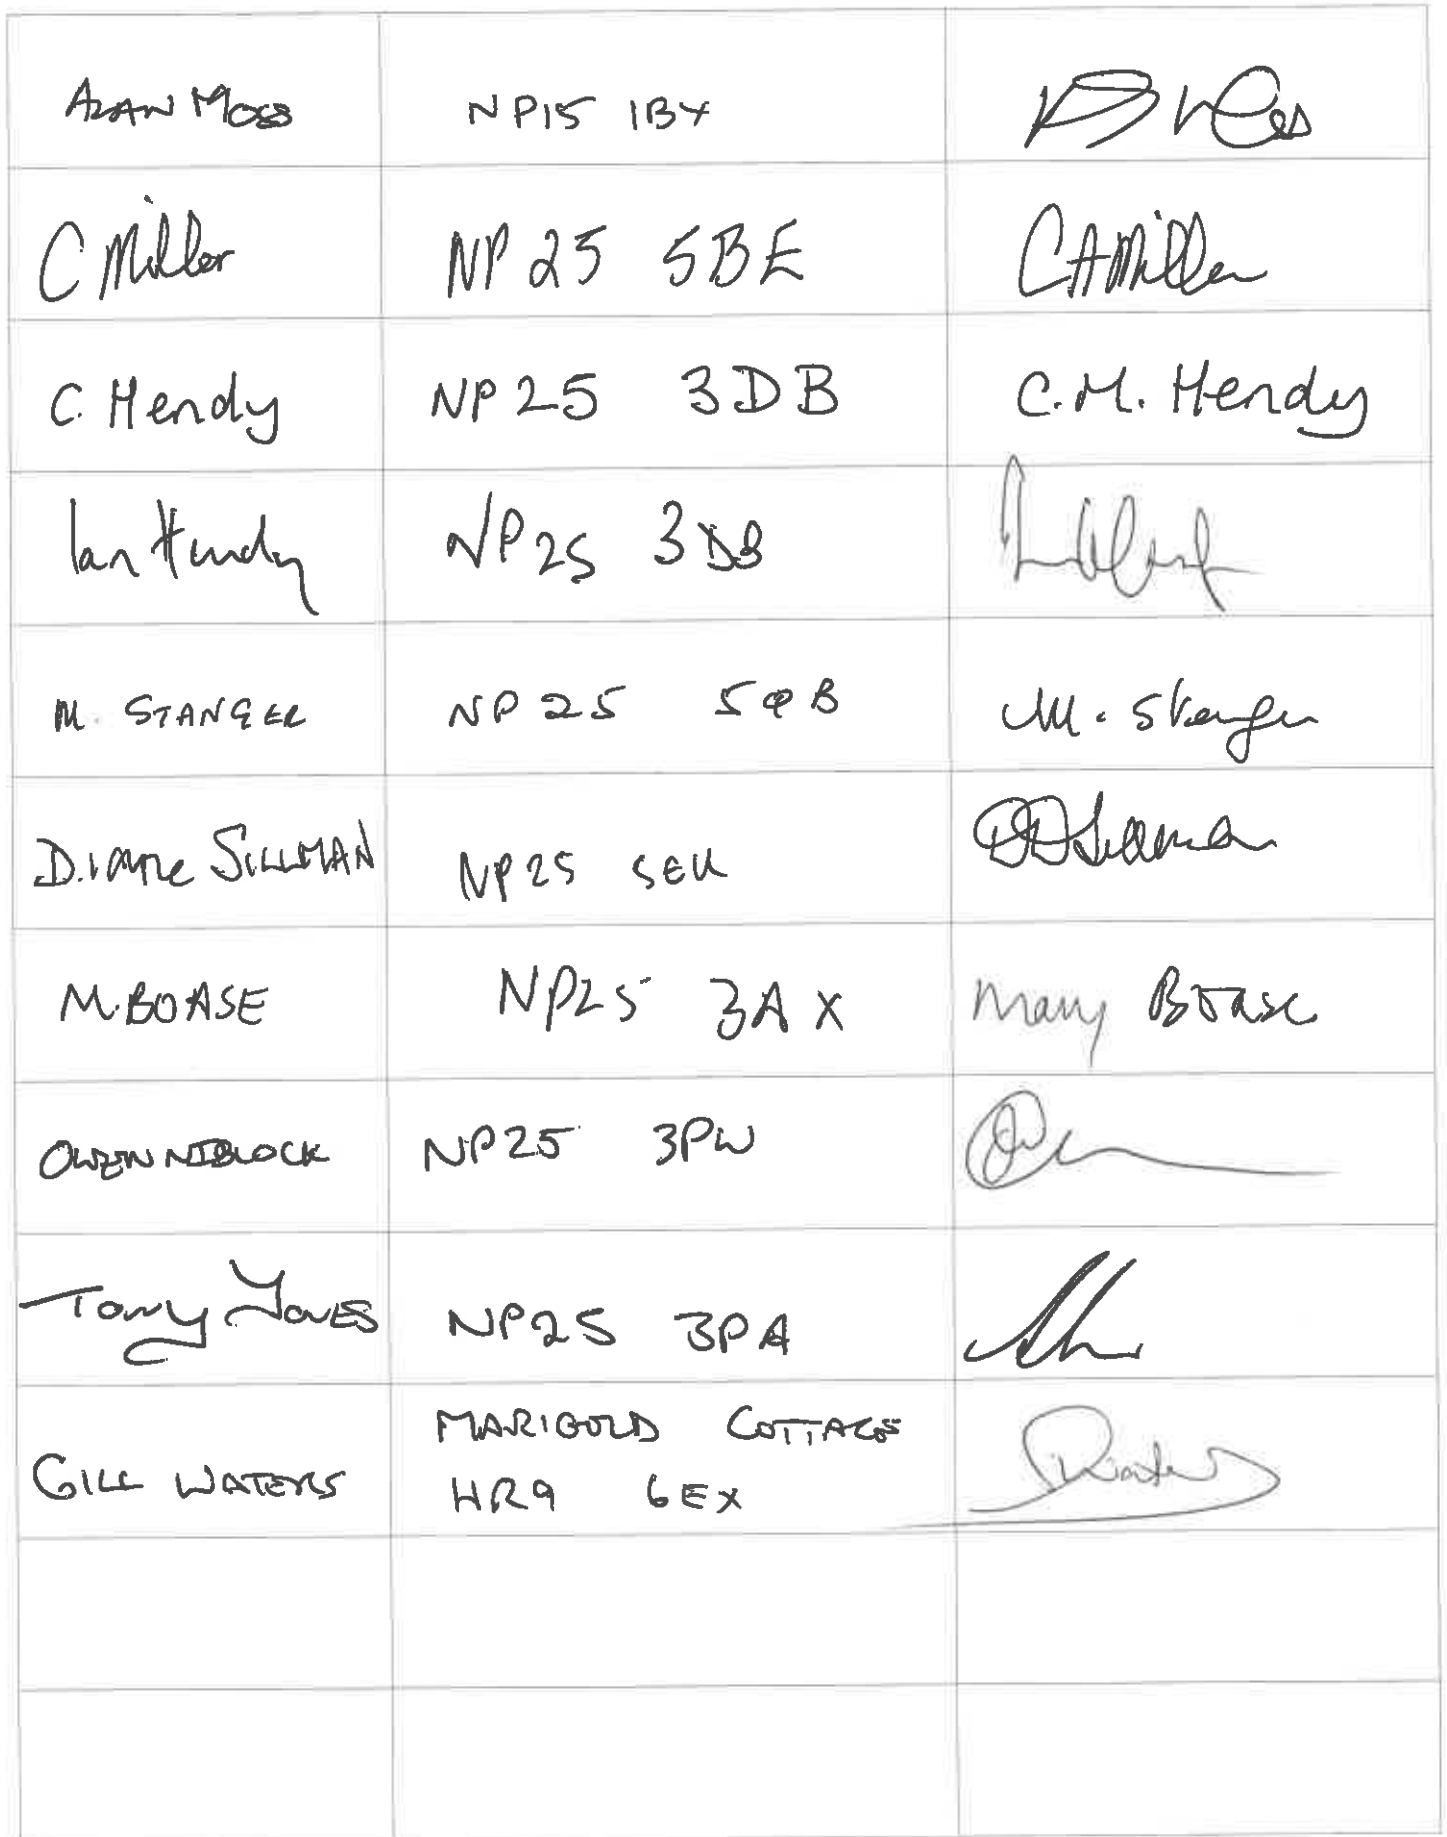 ALAN MOSS NP15 1BY
C Miller NP25 5BE CAMiller
C. Hendy NP25 3DB C.M. Hendy
Ian Hendy NP25 3DB
M. STANGER NP25 5QB M. Stanger
DIANE SILLMAN NP25 5EU
M.BOASE NP25 3AX Mary Boase
OWEN NIBLOCK NP25 3PW
Tony JONES NP25 3PA
GILL WATERS MARIGOLD COTTAGE
HR9 6EX